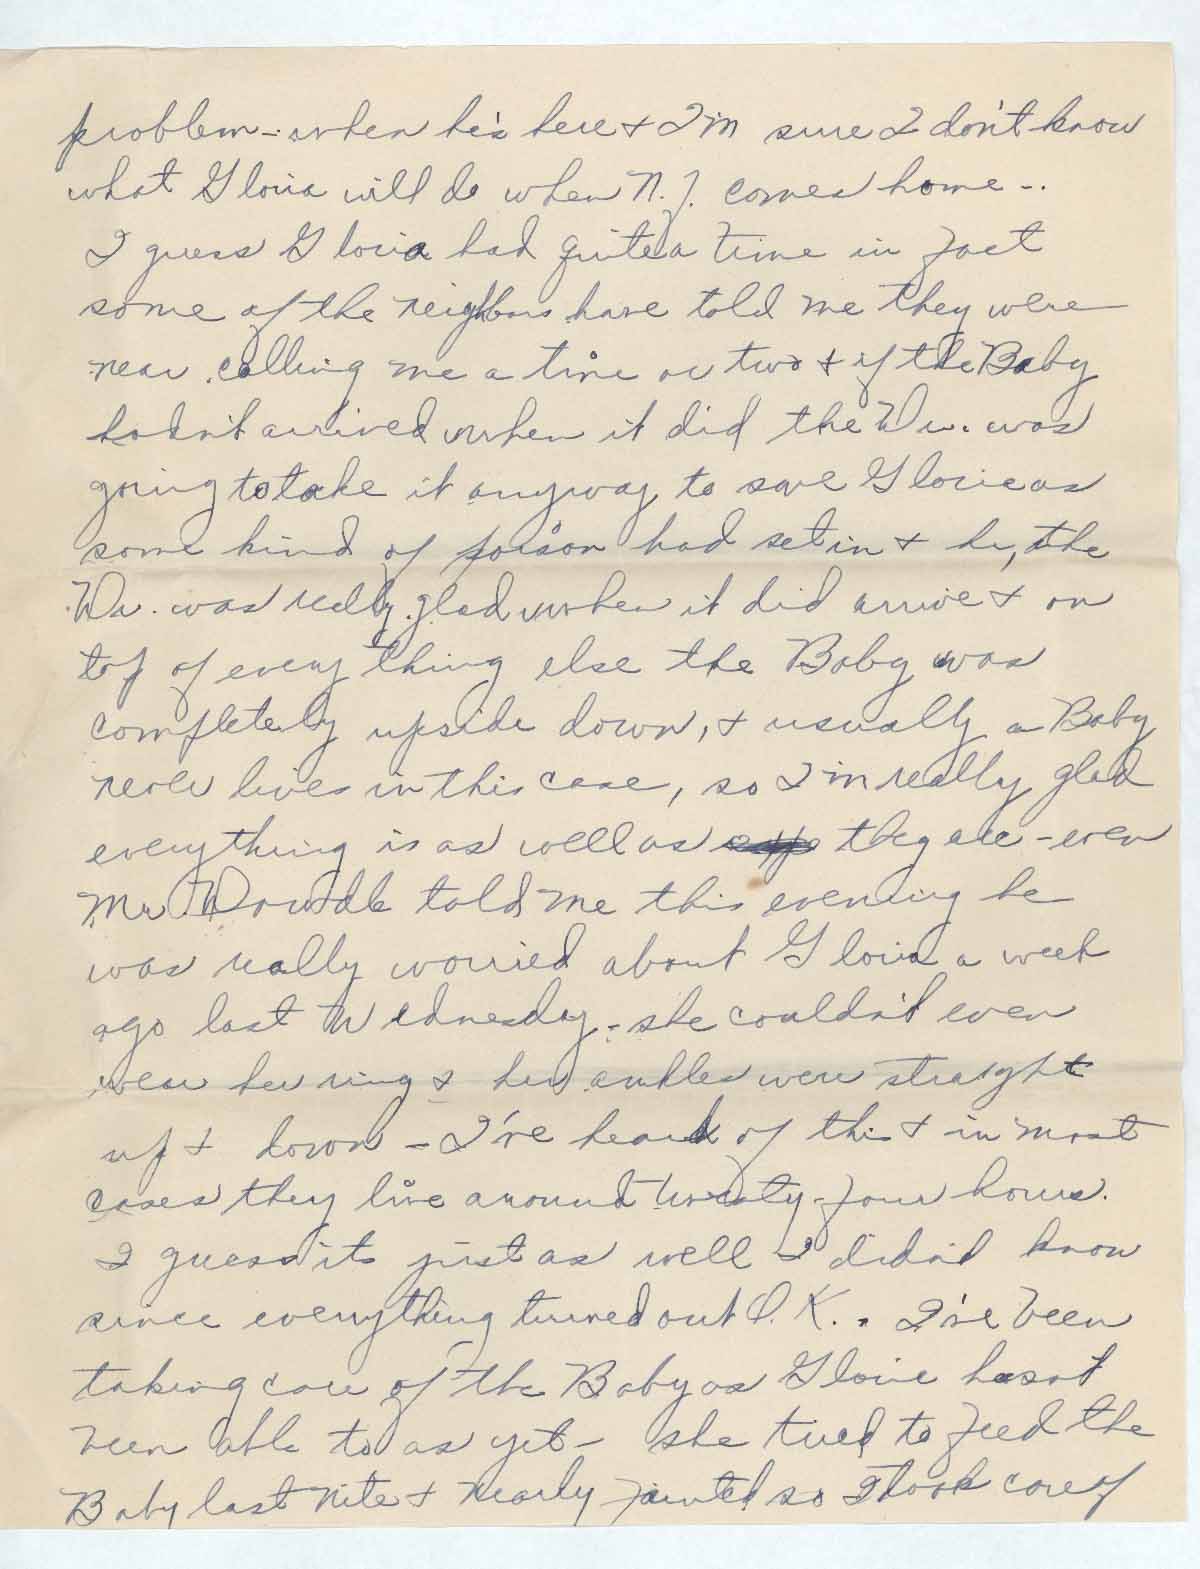 problem - when he's here & I'm sure I don't know
what Gloria will do when N.J. comes home -.
I guess Gloria had quite a time in fact
some of the neighbors have told me they were
near calling me a time or two & if the Baby
hadn't arrived when it did the Dr. was
going to take it anyway to save Gloria as
some kind of poison had set in & he, the
Dr. was really glad when it did arrive & on
top of every thing else the Baby was
completely upside down, & usually a Baby
never lives in this case, so I'm really glad
everything is as well as they are - even
Mr. told me this evening he
was really worried about Gloria a week
ago last Wednesday - she couldn't even
wear her ring & her ankles were straight
up & down - I've heard of this & in most
cases they live around twenty-four hours.
I guess its just as well I didn't know
since everything turned out O.K.. I've been
taking care of the Baby as Gloria hasnt
been able to as yet - she tried to feed the
Baby last nite & nearly fainted so I took care of